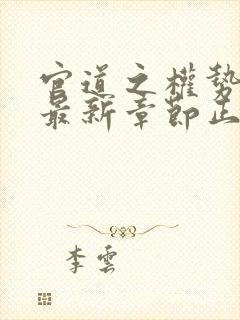 官道之權勢
最新章節止
李雲